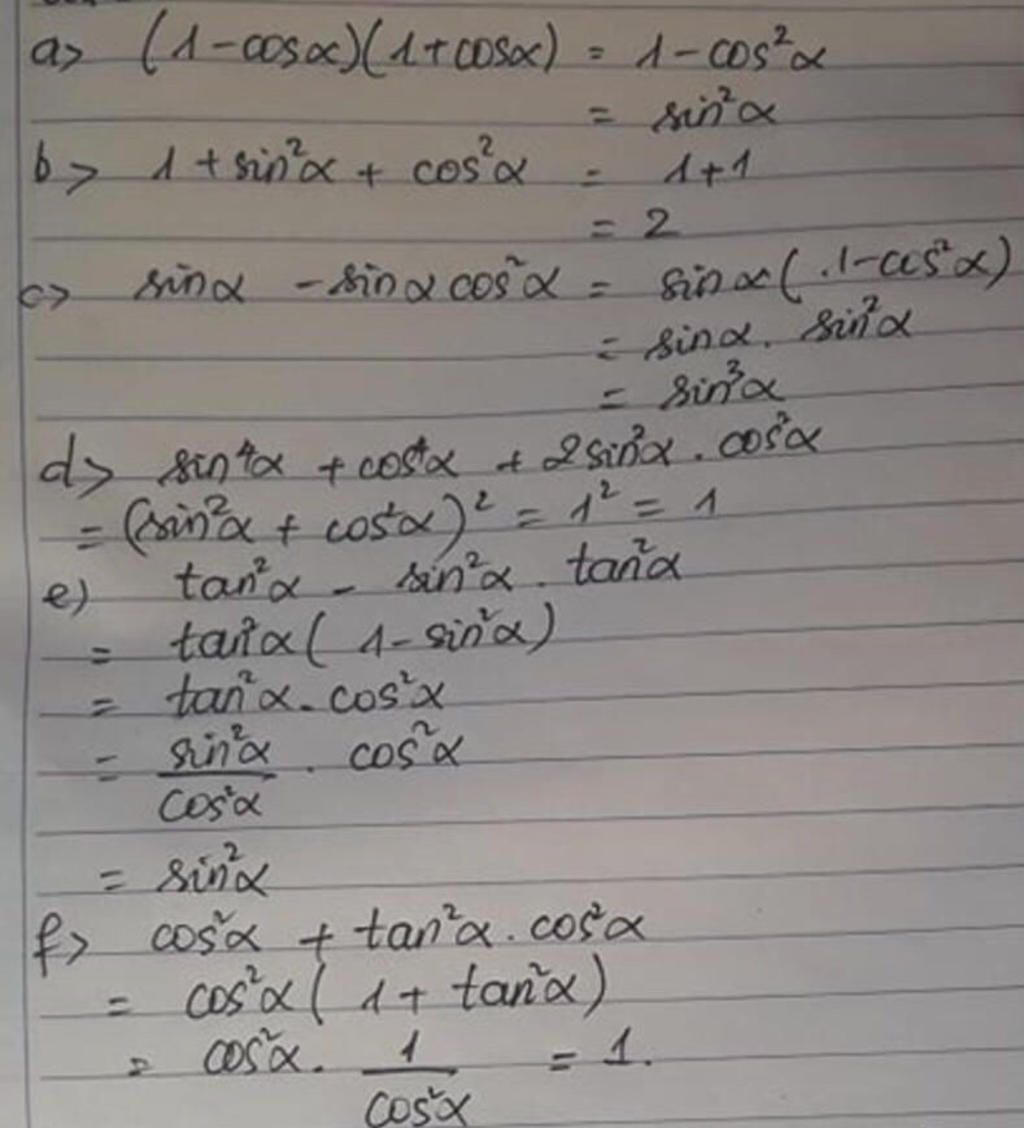 a> (1-cosα)(1+cosα) = 1-cos²α
= sin²α
b> 1+sin²α + cos²α = 1+1
= 2
c> sinα -sinα cos²α = sinα(.1-cos²α)
= sinα. sin²α
= sin³α
d> sin⁴α + cos⁴α + 2sin²α . cos²α
= (sin²α + cos²α)² = 1² = 1
e) tan²α - sin²α . tan²α
= tan²α( 1-sin²α)
= tan²α . cos²α
= sin²α/cos²α . cos²α
= sin²α
f> cos²α + tan²α . cos²α
= cos²α( 1+ tan²α)
= cos²α . 1/cos²α = 1.